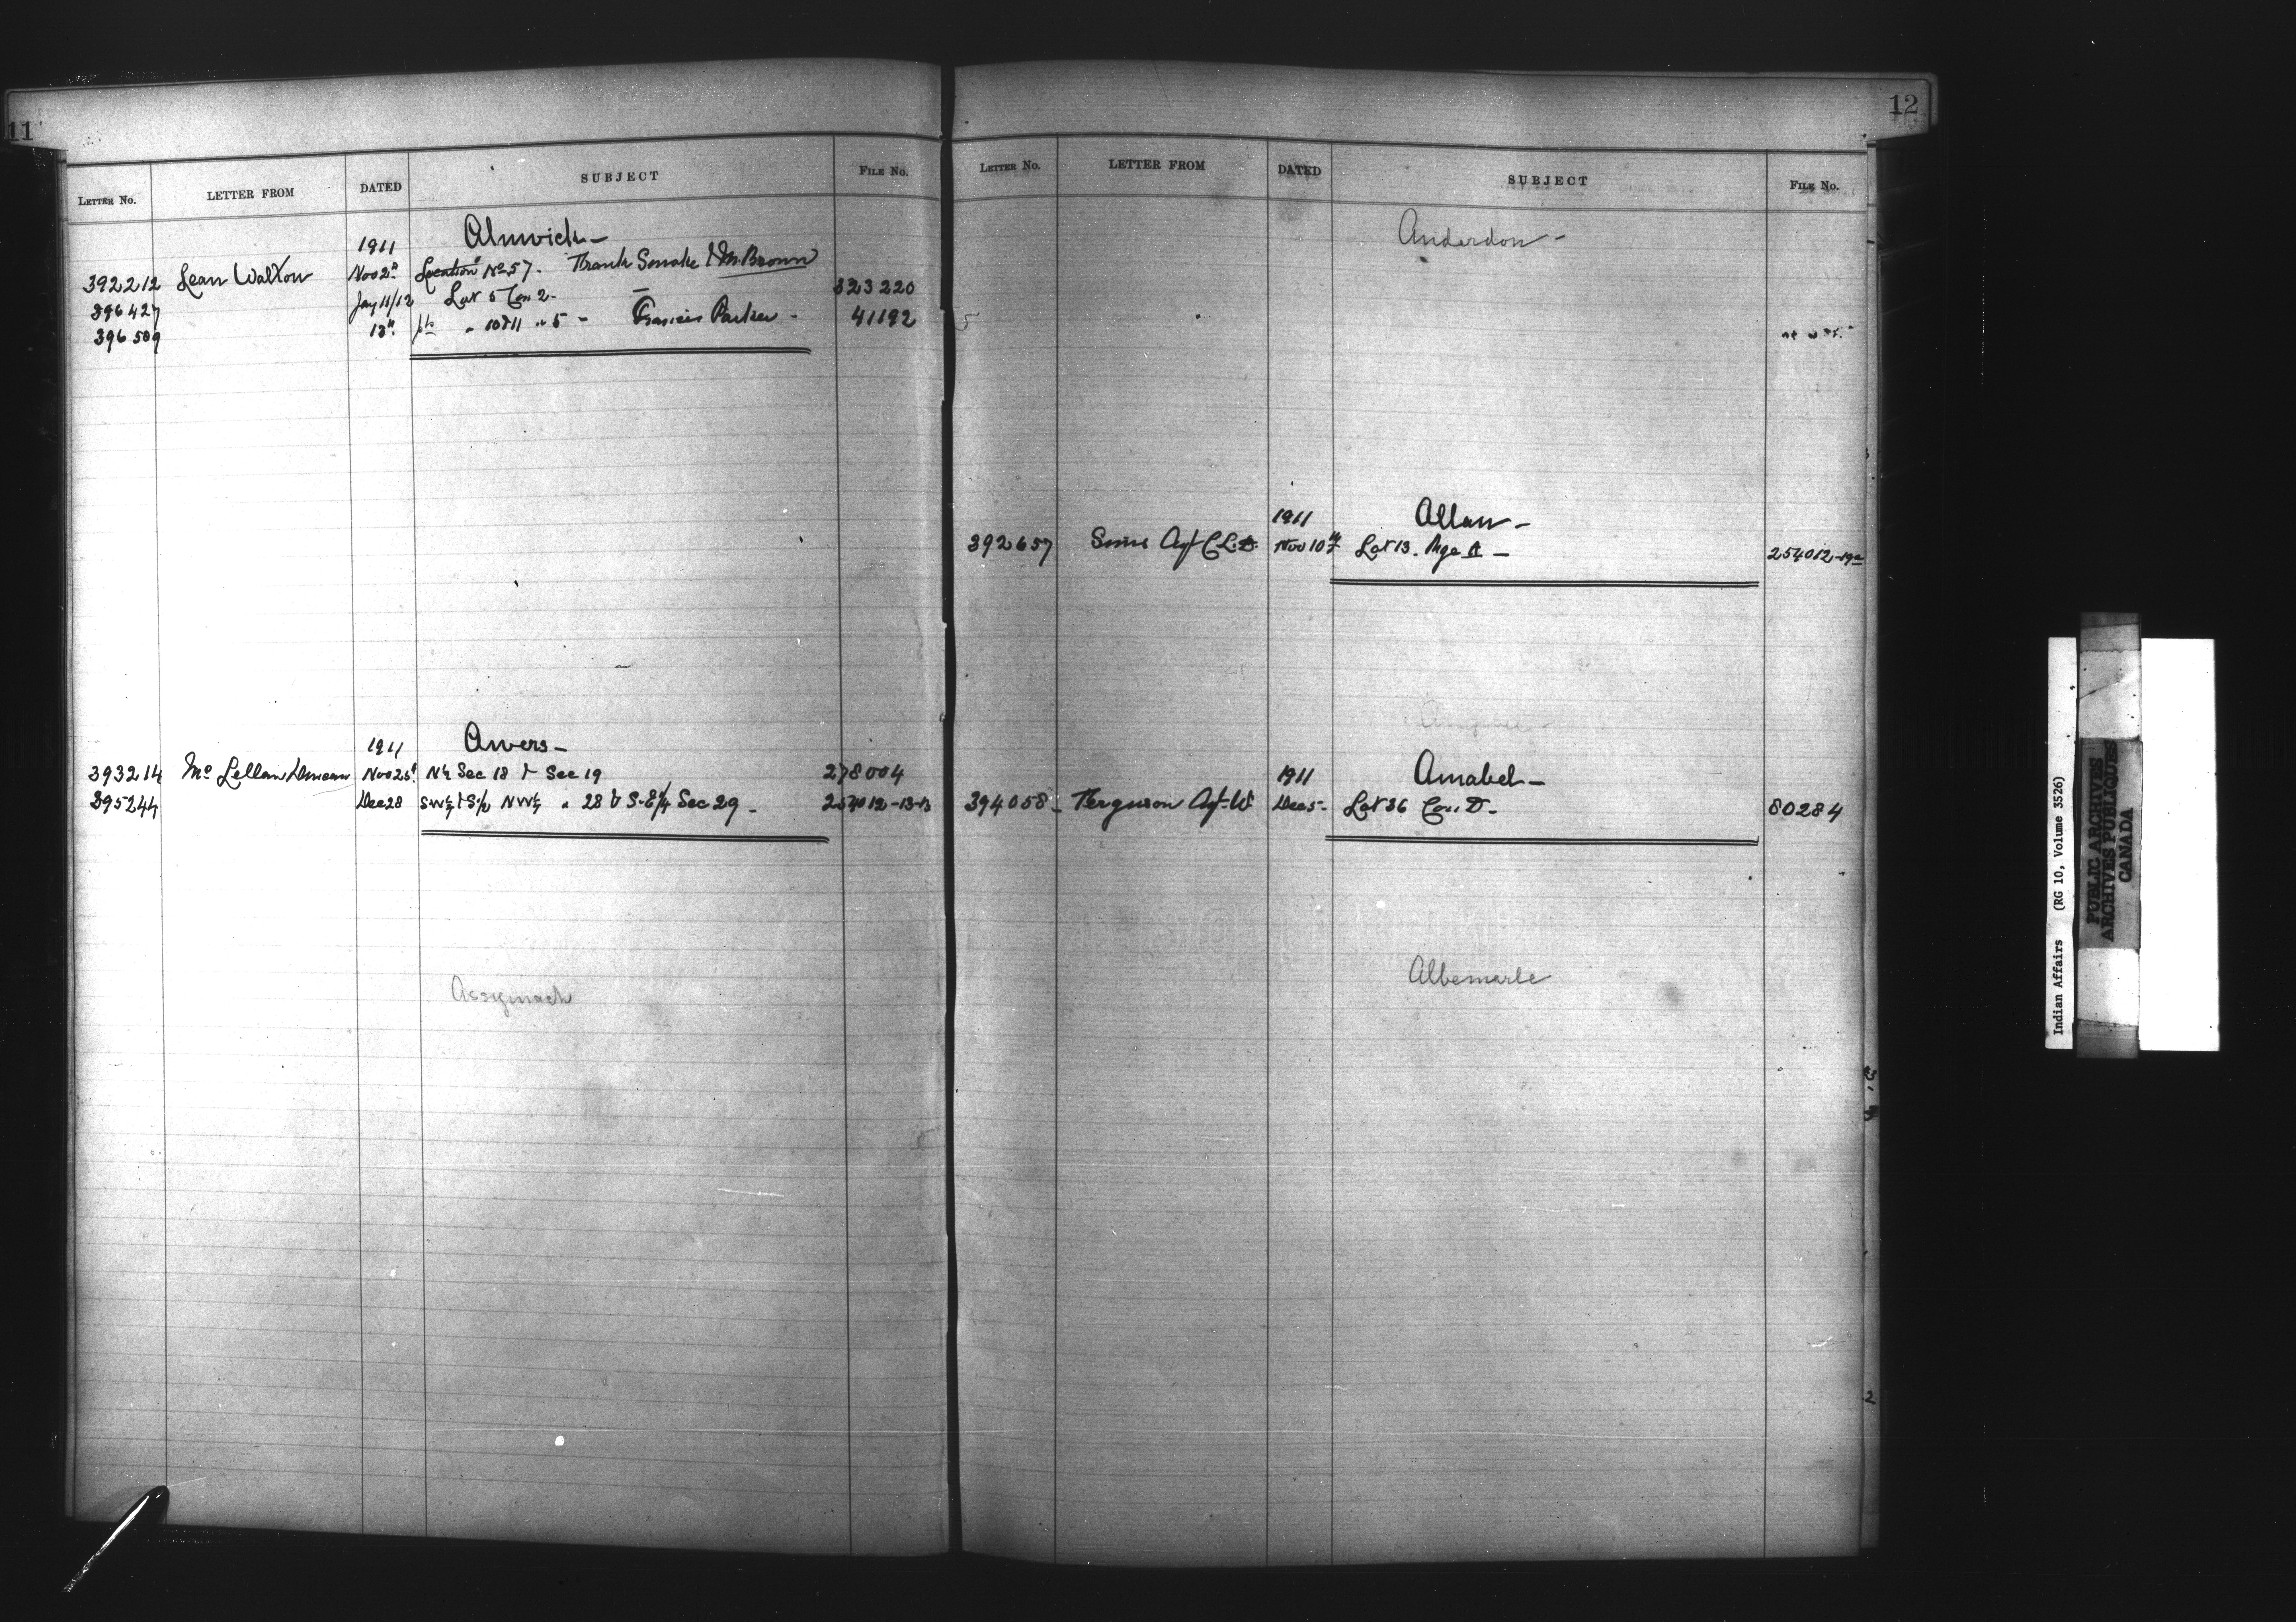 11
LETTER NO. LETTER FROM DATED SUBJECT FILE NO.
Alnwick -
1911
392212 Lean Walton Nov 2nd Location No 57. Frank Smoke & M. Brown
396427 Jay 11/12 Lot 5 Con 2 - 323220
396509 13th pts " 10 & 11 " 5 - Francis Parker - 41192
1911 Awers -
393214 Mc Lellan Duncan Nov 23d N½ Sec 18 & Sec 19 278004
395244 Dec 28 SW¼ & S½ NW¼ " 28 & S.E¼ Sec 29 - 254012-13-13
Assyinack
12
LETTER NO. LETTER FROM DATED SUBJECT FILE NO.
Anderdon -
1911 Allan -
392657 Sims Agt C.L. Nov 10th Lot 13. Rge A - 254012-19
1911 Amabel -
394058 - Ferguson Agt W Dec 5 - Lot 36 Con. D - 80284
Albemarle
Indian Affairs (RG 10, Volume 3526)
PUBLIC ARCHIVES
ARCHIVES PUBLIQUES
CANADA